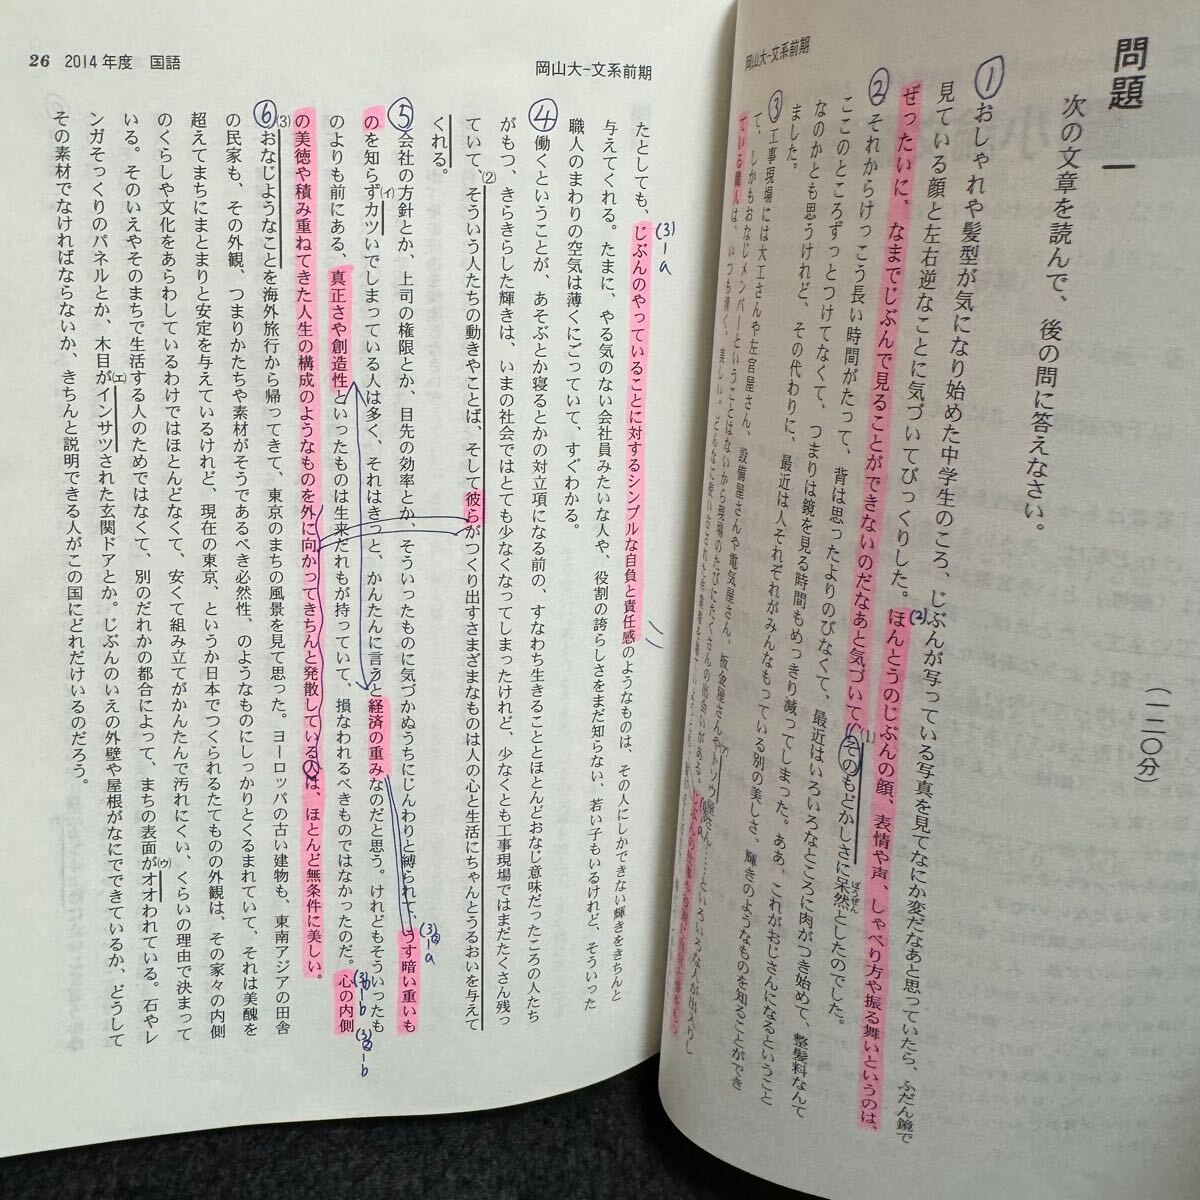 岡山大-文系前期
問題 一
(一二〇分)
次の文章を読んで、後の問に答えなさい。
①
おしゃれや髪型が気になり始めた中学生のころ、じぶんが写っている写真を見てなにか変だなあと思っていたら、ふだん鏡で
見ている顔と左右逆なことに気づいてびっくりした。ほんとうのじぶんの顔、表情や声、しゃべり方や振る舞いというのは、
(2)
ぜったいに、なまでじぶんで見ることができないのだなあと気づいて、そのもどかしさに呆然としたのでした。
(1)
ぼうぜん
②
それからけっこう長い時間がたって、背は思ったよりのびなくて、最近はいろいろなところに肉がつき始めて、整髪料なんて
ここのところずっとつけてなくて、つまりは鏡を見る時間もめっきり減ってしまった。ああ、これがおじさんになるということ
なのかとも思うけれど、その代わりに、最近は人それぞれがみんなもっている別の美しさ、輝きのようなものを知ることができ
ました。
③
工事現場には大工さんや左官屋さん、設備屋さんや電気屋さん、板金屋さんやトソウ屋さん……といろいろな人が出入りし
て、しかもおなじメンバーということはないから現場のたびにたくさんの出会いがある。
ている職人は、いつも清く、美しい。
26 2014年度 国語
岡山大-文系前期
たとしても、じぶんのやっていることに対するシンプルな自負と責任感のようなものは、その人にしかできない輝きをきちんと
(3)-a
与えてくれる。たまに、やる気のない会社員みたいな人や、役割の誇らしさをまだ知らない、若い子もいるけれど、そういった
職人のまわりの空気は薄くにごっていて、すぐわかる。
④
働くということが、あそぶとか寝るとかの対立項になる前の、すなわち生きることとほとんどおなじ意味だったころの人たち
がもつ、きらきらした輝きは、いまの社会ではとても少なくなってしまったけれど、少なくとも工事現場ではまだたくさん残っ
ていて、そういう人たちの動きやことば、そして彼らがつくり出すさまざまなものは人の心と生活にちゃんとうるおいを与えて
(2)
くれる。
⑤
会社の方針とか、上司の権限とか、目先の効率とか、そういったものに気づかぬうちにじんわりと縛られて、うす暗い重いも
(3)②-a
のを知らずカツいでしまっている人は多く、それはきっと、かんたんに言うと経済の重みなのだと思う。けれどもそういったも
(イ)
のよりも前にある、真正さや創造性といったものは生来だれもが持っていて、損なわれるべきものではなかったのだ。心の内側
(3)-b
(3)②-b
の美徳や積み重ねてきた人生の構成のようなものを外に向かってきちんと発散している人は、ほとんど無条件に美しい。
⑥
(3)
おなじようなことを海外旅行から帰ってきて、東京のまちの風景を見て思った。ヨーロッパの古い建物も、東南アジアの田舎
の民家も、その外観、つまりかたちや素材がそうであるべき必然性、のようなものにしっかりとくるまれていて、それは美醜を
超えてまちにまとまりと安定を与えているけれど、現在の東京、というか日本でつくられるたてものの外観は、その家々の内側
のくらしや文化をあらわしているわけではほとんどなくて、安くて組み立てがかんたんで汚れにくい、くらいの理由で決まって
いる。そのいえやそのまちで生活する人のためではなくて、別のだれかの都合によって、まちの表面がオオわれている。石やレ
(ウ)
ンガそっくりのパネルとか、木目がインサツされた玄関ドアとか。じぶんのいえの外壁や屋根がなにでできているか、どうして
(エ)
その素材でなければならないか、きちんと説明できる人がこの国にどれだけいるのだろう。